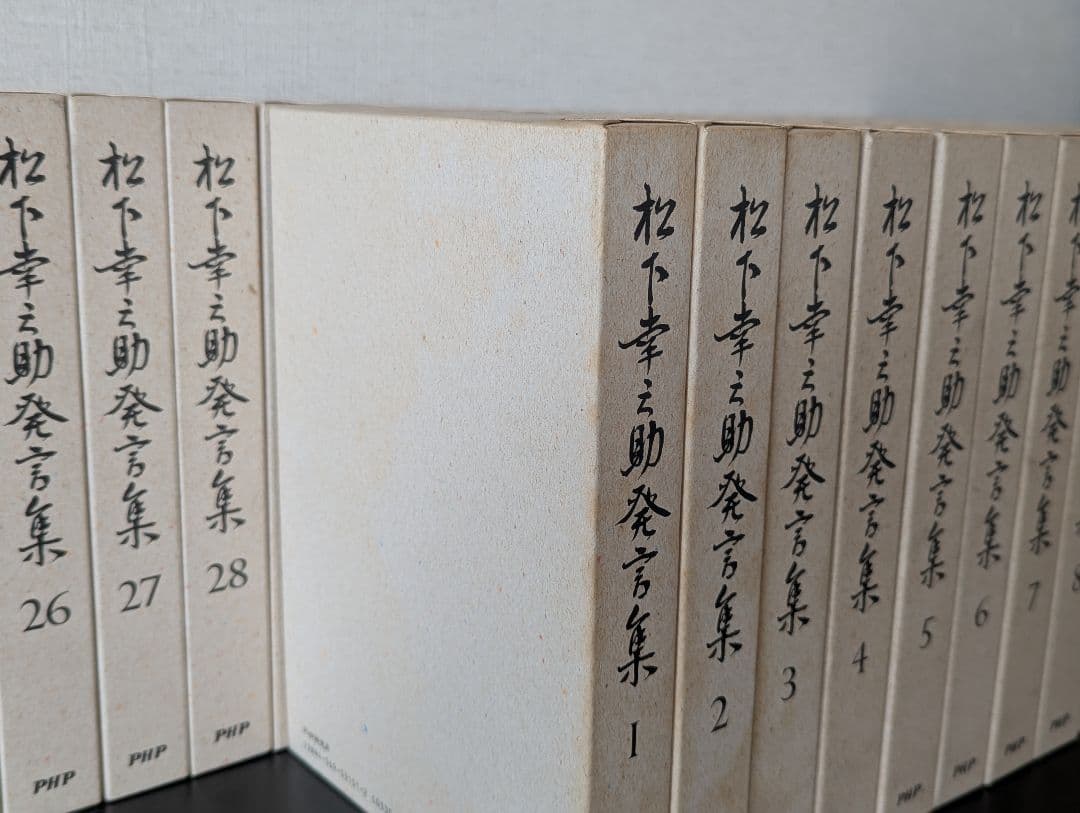 松下幸之助発言集 26 PHP
松下幸之助発言集 27 PHP
松下幸之助発言集 28 PHP
松下幸之助発言集 1
松下幸之助発言集 2
松下幸之助発言集 3
松下幸之助発言集 4
松下幸之助発言集 5 PHP
松下幸之助発言集 6 PHP
松下幸之助発言集 7 PHP
松下幸之助発言 8 PHP